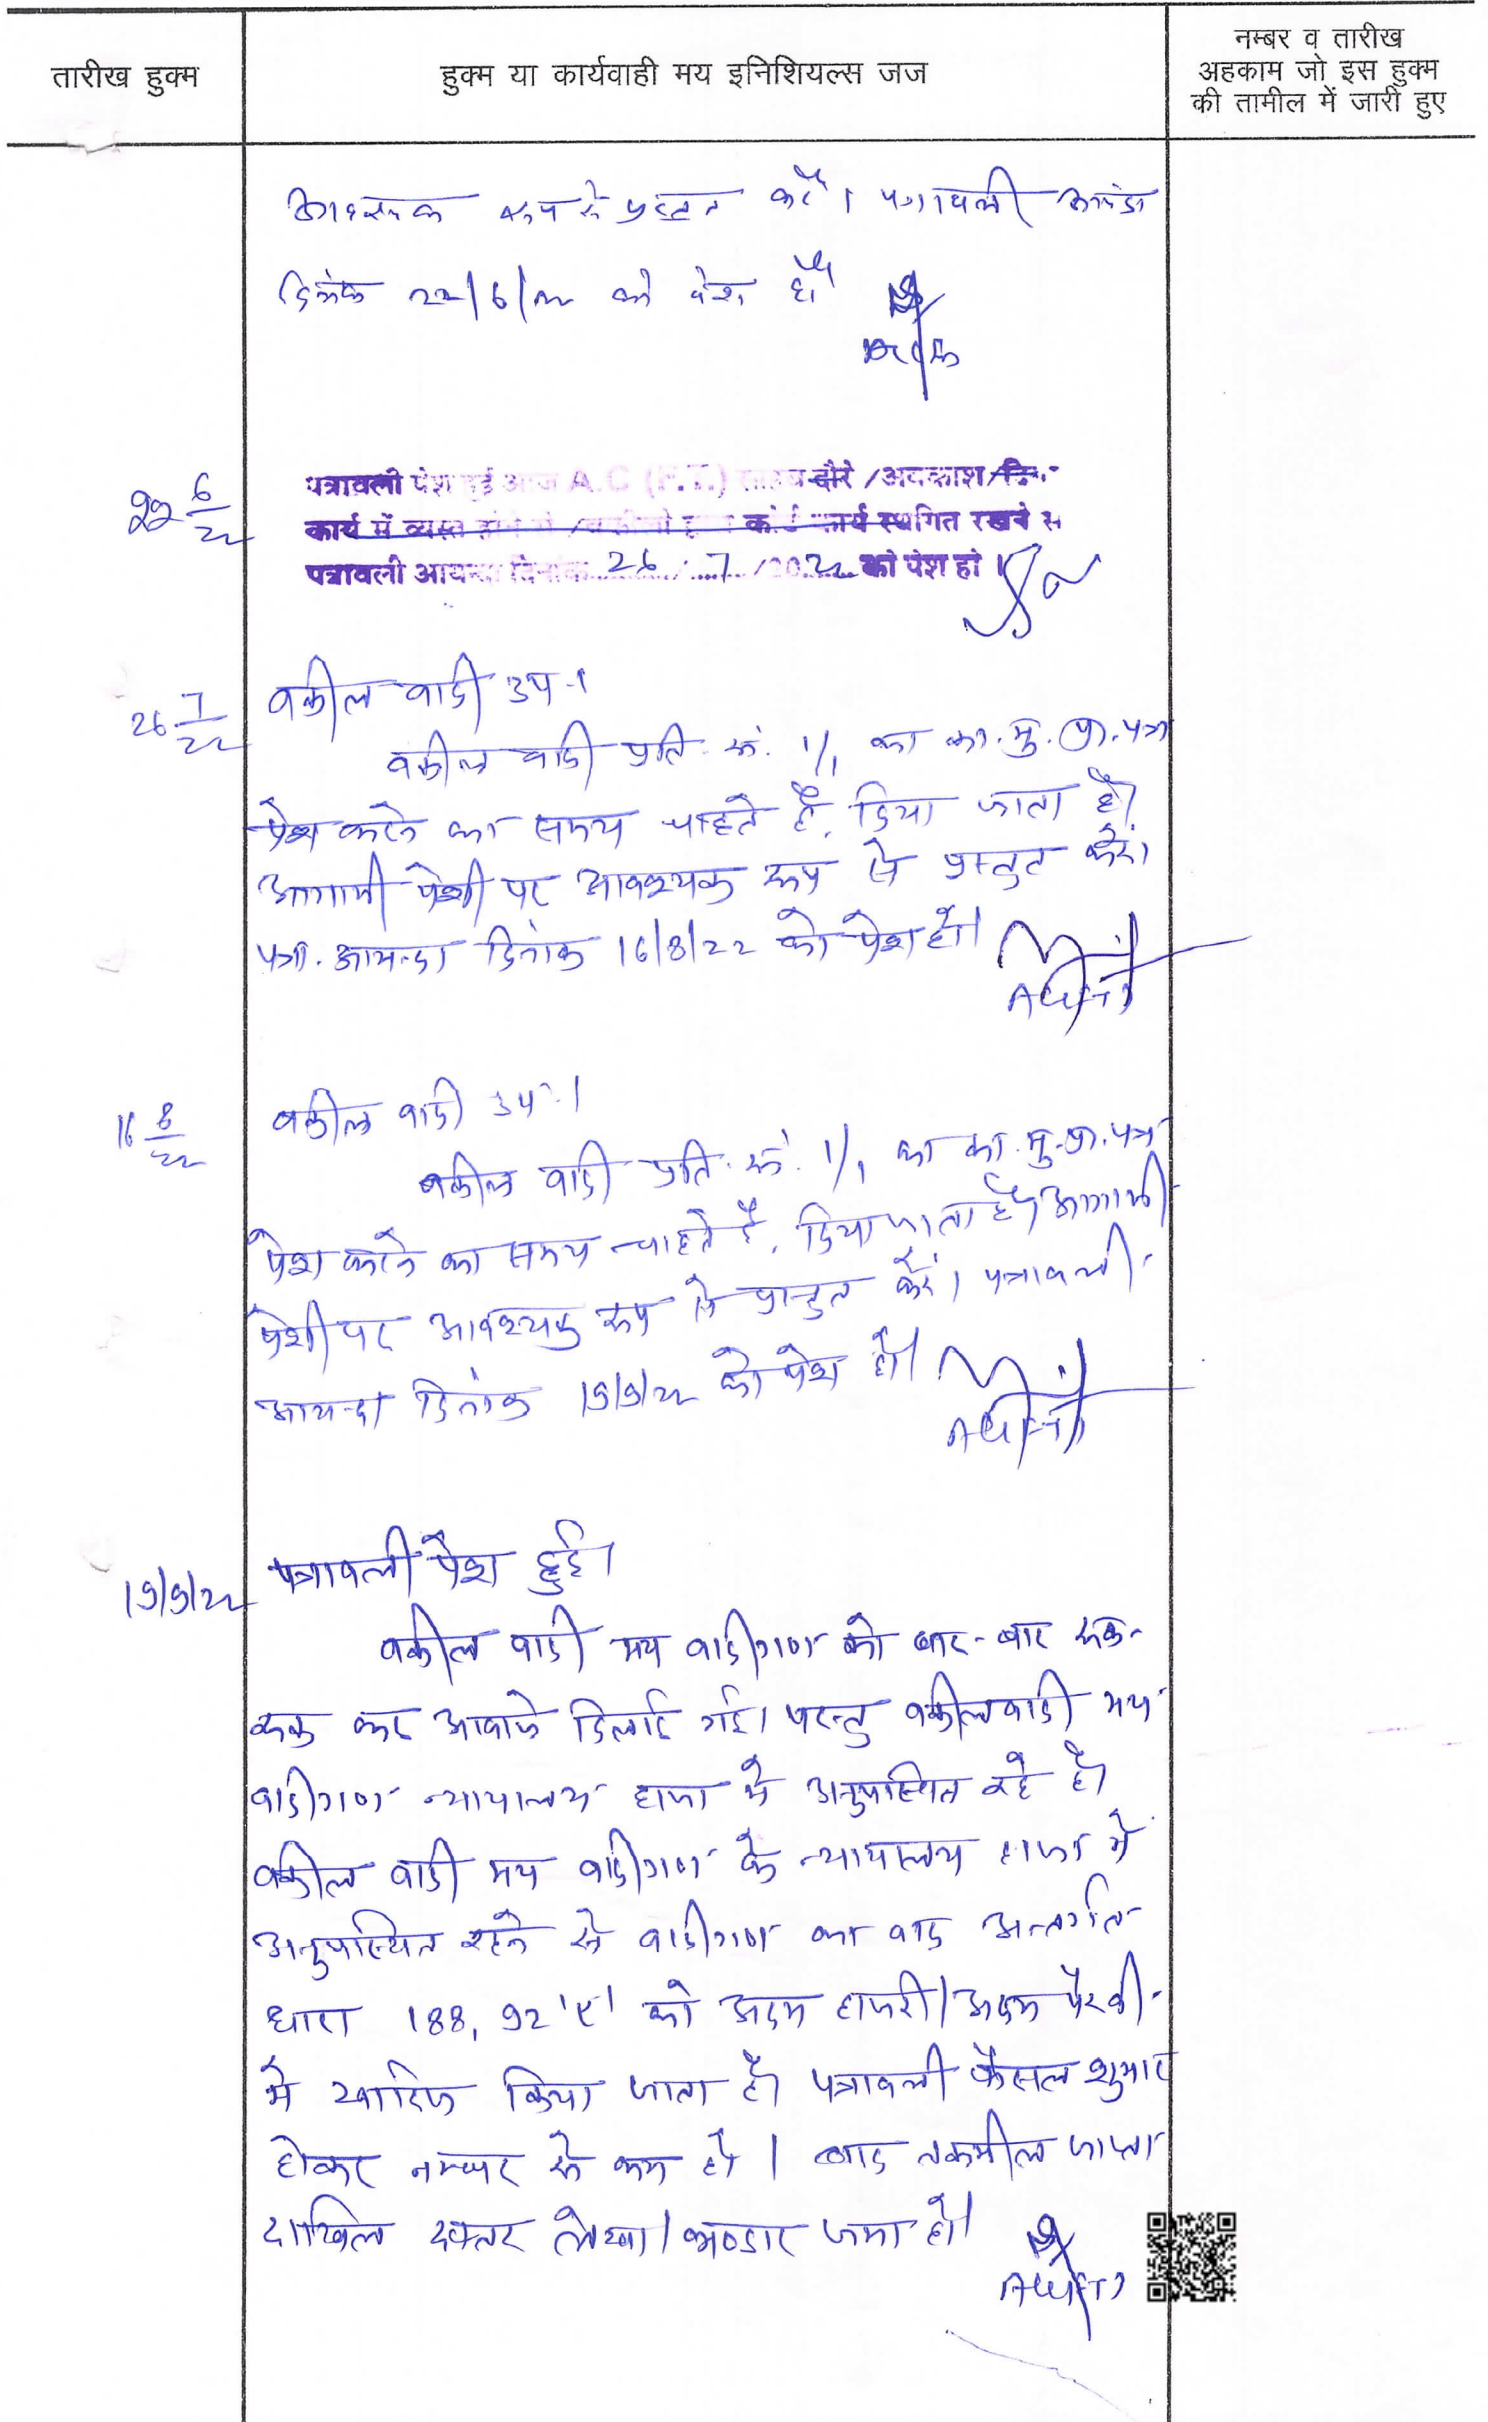 तारीख हुक्म
हुक्म या कार्यवाही मय इनिशियल्स जज
नम्बर व तारीख
अहकाम जो इस हुक्म
की तामील में जारी हुए
आवश्यक रूप से प्रस्तुत करें। पत्रावली आयंदा
दिनांक 22/6/22 को पेश हो
22 6/22
पत्रावली पेश हुई आज A.C (F.T.) साहब दौरे /अवकाश/
कार्य में व्यस्त होने से /वकीलो द्वारा कोर्ट कार्य स्थगित रखने स
पत्रावली आयन्दा दिनांक 26/7/2022 को पेश हो।
26 7/22
वकील वादी उप.।
वकील वादी प्रति. सं. 1/1 का का. मु. प्रा. पत्र
पेश करने का समय चाहते है, दिया जाता है।
आगामी पेशी पर आवश्यक रूप से प्रस्तुत करें।
पत्रा. आयन्दा दिनांक 16/8/22 को पेश हो।
AC(FT)
16 8/22
वकील वादी उप.।
वकील वादी प्रति. सं. 1/1 का का. मु. प्रा. पत्र
पेश करने का समय चाहते है, दिया जाता है। आगामी
पेशी पर आवश्यक रूप से प्रस्तुत करें। पत्रावली
आयन्दा दिनांक 19/9/22 को पेश हो।
AC(FT)
19/9/22
पत्रावली पेश हुई।
वकील वादी मय वादीगण को बार-बार रूक-
रूक कर आवाजे दिलाई गई। परन्तु वकील वादी मय
वादीगण न्यायालय हाजा मे अनुपस्थित रहे है।
वकील वादी मय वादीगण के न्यायालय हाजा मे
अनुपस्थित रहने से वादीगण का वाद अन्तर्गत
धारा 188, 92 'ए' को अदम हाजरी/अदम पैरवी
मे खारिज किया जाता है। पत्रावली फैसल शुमार
होकर नम्बर से कम हो। बाद तकमील जाप्ता
दाखिल दफ्तर लेखा/भण्डार जमा हो।
AC(FT)